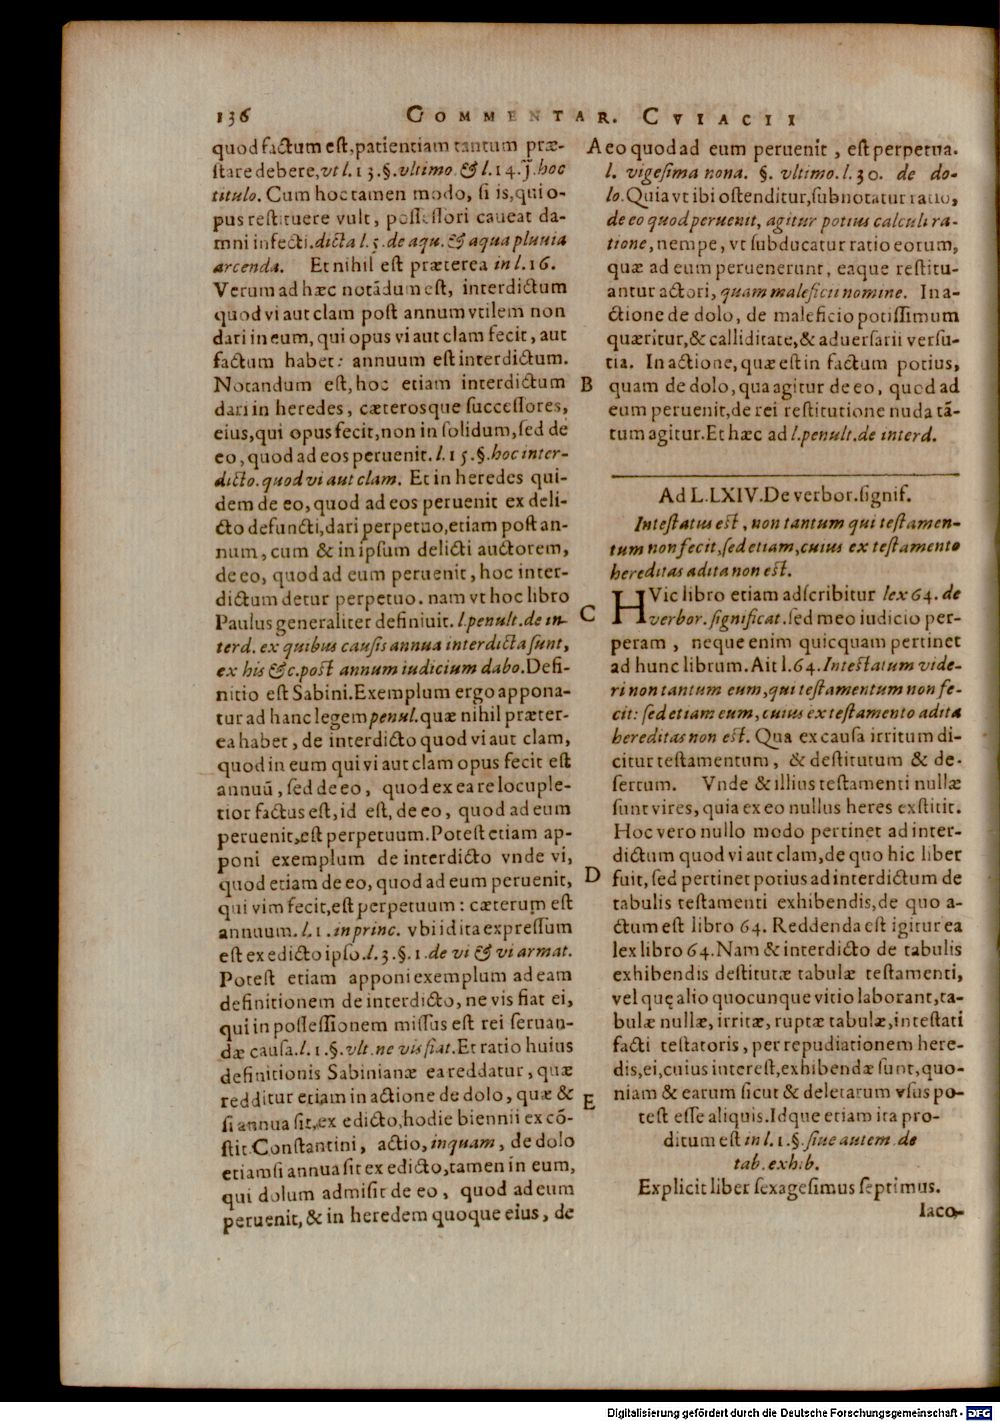 136 COMMENTAR. CVIACII
quod factum eſt, patientiam tantum præ-
ſtare debere, vt l. 13. §. vltimo & l. 14. §. hoc
titulo. Cum hoc tamen modo, ſi is, qui o-
pus reſtituere vult, poſſeſſori caueat da-
mni infecti. dicta l. 5. de aqu. & aqua pluuia
arcenda. Et nihil eſt præterea in l. 16.
Verum ad hæc notādum eſt, interdictum
quod vi aut clam poſt annum vtilem non
dari in eum, qui opus vi aut clam fecit, aut
factum habet: annuum eſt interdictum.
Notandum eſt, hoc etiam interdictum
dari in heredes, cæterosque ſucceſſores,
eius, qui opus fecit, non in ſolidum, ſed de
eo, quod ad eos peruenit. l. 15. §. hoc inter-
dicto. quod vi aut clam. Et in heredes qui-
dem de eo, quod ad eos peruenit ex deli-
cto defuncti, dari perpetuo, etiam poſt an-
num, cum & in ipſum delicti auctorem,
de eo, quod ad eum peruenit, hoc inter-
dictum detur perpetuo. nam vt hoc libro
Paulus generaliter definiuit. l. penult. de in-
terd. ex quibus cauſis annua interdicta ſunt,
ex his &c. poſt annum iudicium dabo. Defi-
nitio eſt Sabini. Exemplum ergo appona-
tur ad hanc legem penul. quæ nihil præter-
ea habet, de interdicto quod vi aut clam,
quod in eum qui vi aut clam opus fecit eſt
annuū, ſed de eo, quod ex ea re locuple-
tior factus eſt, id eſt, de eo, quod ad eum
peruenit, eſt perpetuum. Poteſt etiam ap-
poni exemplum de interdicto vnde vi,
quod etiam de eo, quod ad eum peruenit,
qui vim fecit, eſt perpetuum: cæterum eſt
annuum. l. 1. in princ. vbi id ita expreſſum
eſt ex edicto ipſo. l. 3. §. 1. de vi & vi armat.
Poteſt etiam apponi exemplum ad eam
definitionem de interdicto, ne vis fiat ei,
qui in poſſeſſionem miſſus eſt rei ſeruan-
dæ cauſa. l. 1. §. vlt. ne vis fiat. Et ratio huius
definitionis Sabinianæ ea reddatur, quæ
redditur etiam in actione de dolo, quæ &
ſi annua ſit, ex edicto, hodie biennii ex cō-
ſtit. Conſtantini, actio, inquam, de dolo
etiamſi annua ſit ex edicto, tamen in eum,
qui dolum admiſit de eo, quod ad eum
peruenit, & in heredem quoque eius, de
A eo quod ad eum peruenit, eſt perpetua.
l. vigeſima nona. §. vltimo. l. 30. de do-
lo. Quia vt ibi oſtenditur, ſubnotatur ratio,
de eo quod peruenit, agitur potius calculi ra-
tione, nempe, vt ſubducatur ratio eorum,
quæ ad eum peruenerunt, eaque reſtitu-
antur actori, quam maleficii nomine. In a-
ctione de dolo, de maleficio potiſſimum
quæritur, & calliditate, & aduerſarii verſu-
tia. In actione, quæ eſt in factum potius,
B quam de dolo, qua agitur de eo, quod ad
eum peruenit, de rei reſtitutione nuda tā-
tum agitur. Et hæc ad l. penult. de interd.
Ad L. LXIV. De verbor. ſignif.
Inteſtatus eſt, non tantum qui teſtamen-
tum non fecit, ſed etiam, cuius ex teſtamento
hereditas adita non eſt.
HVic libro etiam adſcribitur lex 64. de
C verbor. ſignificat. ſed meo iudicio per-
peram, neque enim quicquam pertinet
ad hunc librum. Ait l. 64. Inteſtatum vide-
ri non tantum eum, qui teſtamentum non fe-
cit: ſed etiam eum, cuius ex teſtamento adita
hereditas non eſt. Qua ex cauſa irritum di-
citur teſtamentum, & deſtitutum & de-
ſertum. Vnde & illius teſtamenti nullæ
ſunt vires, quia ex eo nullus heres exſtitit.
Hoc vero nullo modo pertinet ad inter-
dictum quod vi aut clam, de quo hic liber
D fuit, ſed pertinet potius ad interdictum de
tabulis teſtamenti exhibendis, de quo a-
ctum eſt libro 64. Reddenda eſt igitur ea
lex libro 64. Nam & interdicto de tabulis
exhibendis deſtitutæ tabulæ teſtamenti,
vel quę alio quocunque vitio laborant, ta-
bulæ nullæ, irritæ, ruptæ tabulæ, inteſtati
facti teſtatoris, per repudiationem here-
dis, ei, cuius intereſt, exhibendæ ſunt, quo-
E niam & earum ſicut & deletarum vſus po-
teſt eſſe aliquis. Idque etiam ita pro-
ditum eſt in l. 1. §. ſiue autem de
tab. exhib.
Explicit liber ſexageſimus ſeptimus.
Iaco-
Digitalisierung gefördert durch die Deutsche Forschungsgemeinschaft - DFG